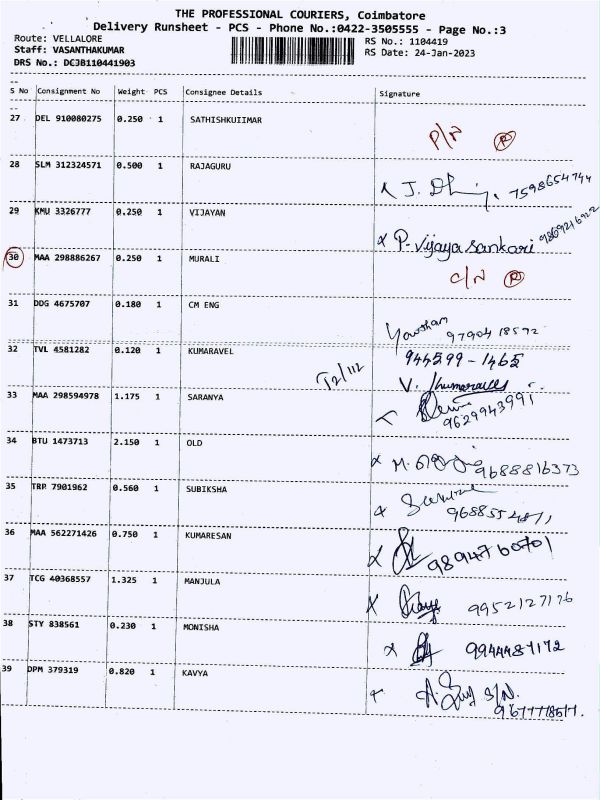 THE PROFESSIONAL COURIERS, Coimbatore
Delivery Runsheet - PCS - Phone No.:0422-3505555 - Page No.:3
Route: VELLALORE
RS No.: 1104419
Staff: VASANTHAKUMAR
RS Date: 24-Jan-2023
DRS No.: DCJB110441903
S No Consignment No Weight PCS Consignee Details Signature
27 DEL 910080275 0.250 1 SATHISHKUIIMAR
P/N R
28 SLM 312324571 0.500 1 RAJAGURU
7598654744
29 KMU 3326777 0.250 1 VIJAYAN
x P. Vijaya Sankari
30 MAA 298886267 0.250 1 MURALI
C/N R
31 DDG 4675707 0.180 1 CM ENG
9790418572
32 TVL 4581282 0.120 1 KUMARAVEL
944599-1465
33 MAA 298594978 1.175 1 SARANYA
9629943991
34 BTU 1473713 2.150 1 OLD
9688816373
35 TRP 7901962 0.560 1 SUBIKSHA
36 MAA 562271426 0.750 1 KUMARESAN
9894760701
37 TCG 40368557 1.325 1 MANJULA
9952127176
38 STY 838561 0.230 1 MONISHA
9944487172
39 DPM 379319 0.820 1 KAVYA